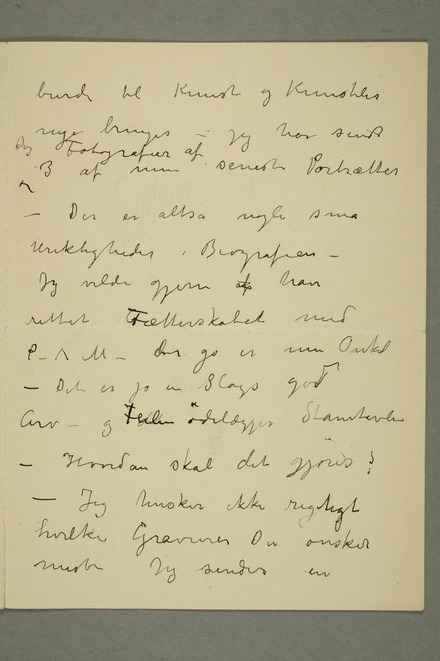 burde til Kunst og Kunstens
nye bruges – jeg har sendt
Dig Fotografier af
3 af mine seneste Portrætter
– Der er altsa nogle sma
Urigtigheder i Biografien –
Jeg vilde gjerne have
rettet Fætterskabet med
P–A M– der jo er min Onkel
– Det er jo en Slags god
Arv – og Feilen ödelægger Stamtavlen
– Hvordan skal det gjöres?
– Jeg husker ikke rigtigt
hvilke Gravurer Du önsker
mest Jeg sender en